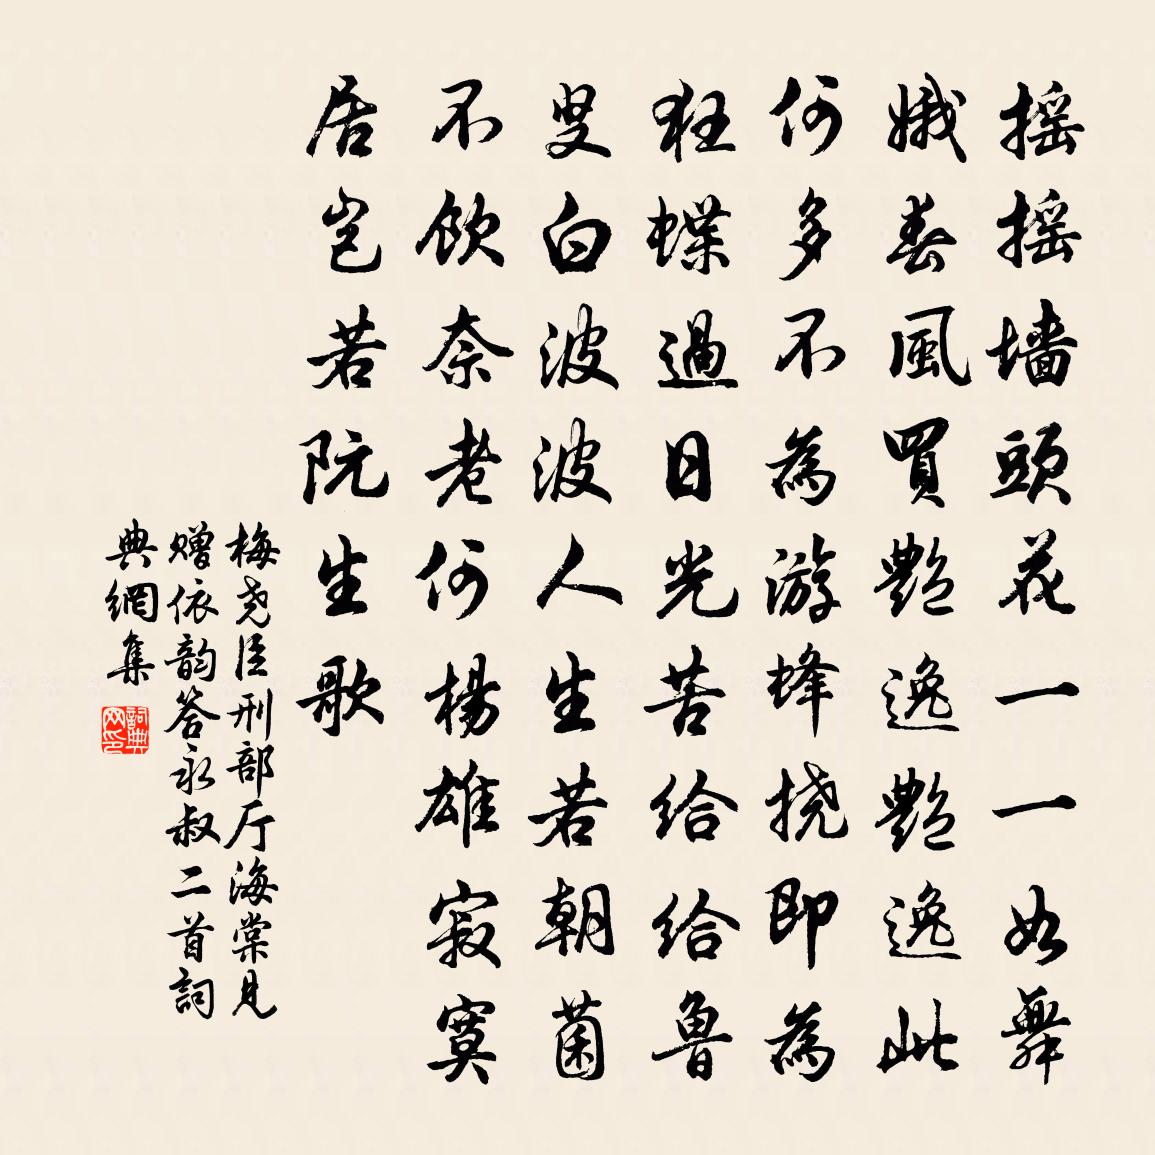 搖搖墻頭花一一如舞
娥春風買艷逸艷逸此
何多不為游蜂挠即為
狂蝶過日光苦紿紿魯
叟白波波人生若朝菌
不飲奈老何楊雄寂寞
居豈若阮生歌
梅尧臣刑部厅海棠見
赠依韵答永叔二首詞
典網集
詞典
网印